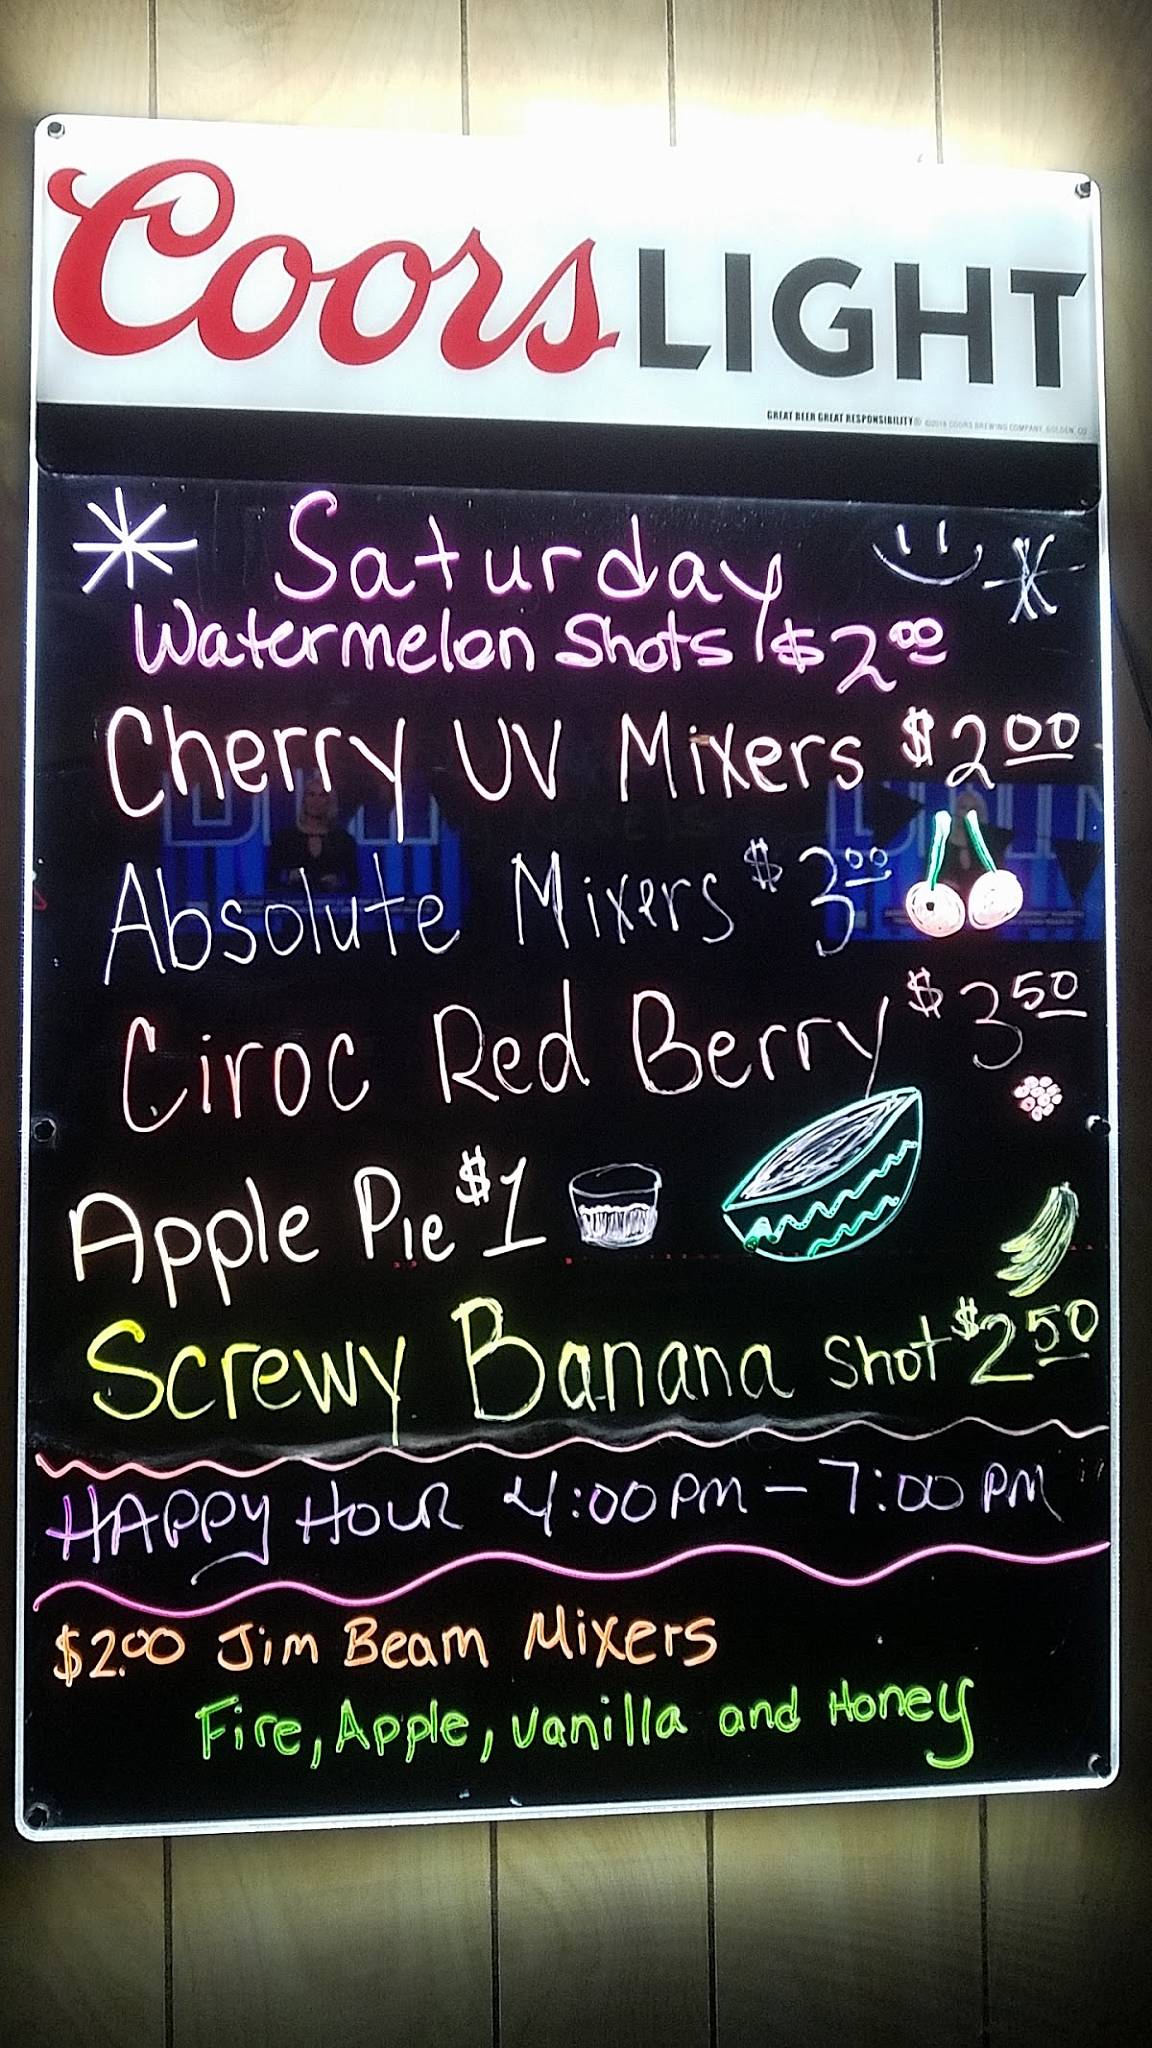 Coors LIGHT
GREAT BEER GREAT RESPONSIBILITY® ©2016 COORS BREWING COMPANY, GOLDEN, CO
Saturday
Watermelon Shots $2.00
Cherry UV Mixers $2.00
Absolute Mixers $3.00
Ciroc Red Berry $3.50
Apple Pie $1
Screwy Banana Shot $2.50
HAPPY HOUR 4:00PM – 7:00PM
$2.00 Jim Beam Mixers
Fire, Apple, Vanilla and Honey